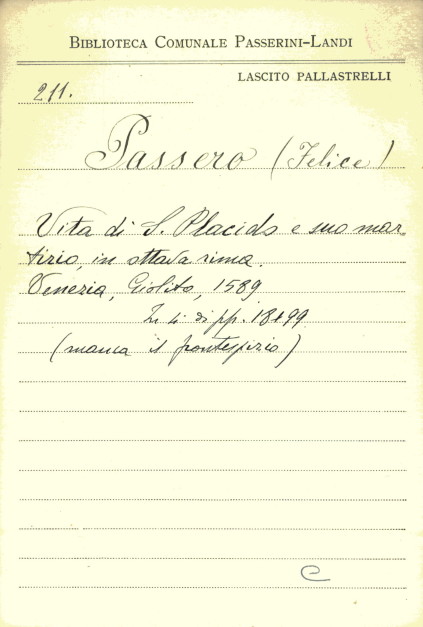 BIBLIOTECA COMUNALE PASSERINI-LANDI
LASCITO PALLASTRELLI
211.
Passero (Felice)
Vita di S. Placido e suo mar
tirio, in ottava rima.
Venezia, Giolito, 1589
In 4 di pp. 18+99
(manca il frontespizio)
C